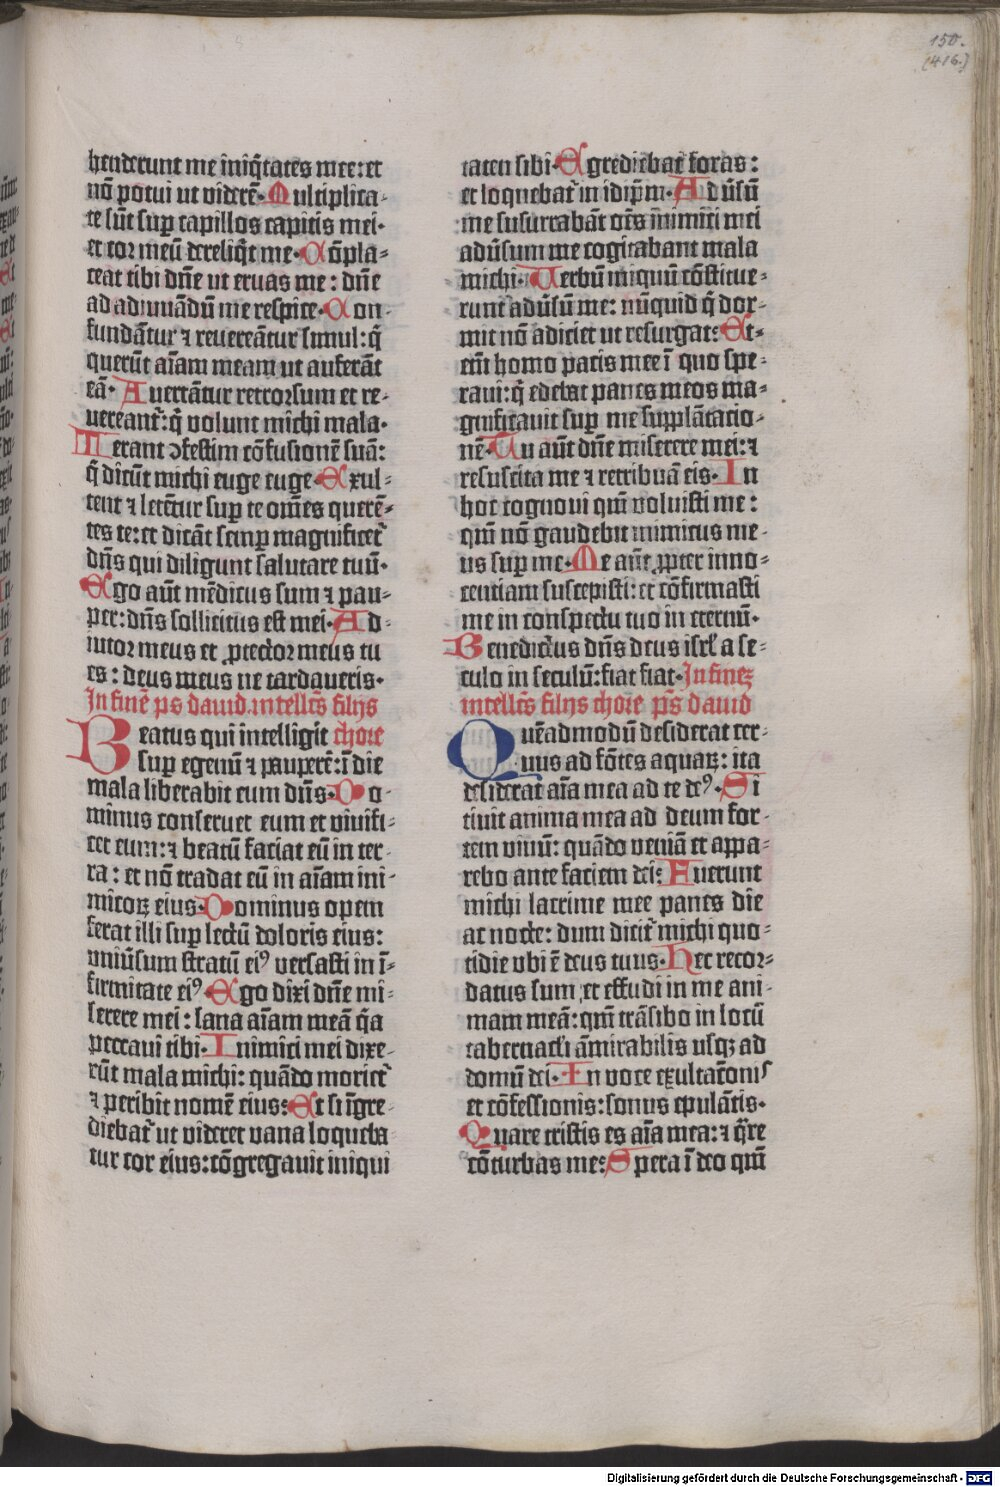 150.
(416.)
henderunt me iniq̃tates mee: et
nō potui ut viderē. Multiplica-
te sūt sup̱ capillos capitis mei.
et cor meū dereliq̃t me. Cōpla-
ceat tibi dñe ut eruas me: dñe
ad adiuuādū me respice. Con-
fundātur ⁊ reuereātur simul: q̃
querūt aīam meam ut auferāt
eā. Auertātur retrorsum et re-
uereant̃: q̃ volunt michi mala.
Ferant ꝯfestim cōfusionē suā:
q̃ dicūt michi euge euge. Exul-
tent ⁊ letēt̃ur sup̱ te om̄es querē-
tes te: et dicāt semp̱ magnificet̃
dñs qui diligunt salutare tuū.
Ego aūt mēdicus sum ⁊ pau-
per: dñs sollicitus est mei. Ad-
iutor meus et ꝓtector meus tu
es: deus meus ne tardaueris.
In finē p̄s dauid. intellc̄s filijs
Beatus qui intelligit chore
sup̱ egenū ⁊ paup̱erē: ī die
mala liberabit eum dñs. Do-
minus conseruet eum et viuifi-
cet eum: ⁊ beatū faciat eū in ter-
ra: et nō tradat eū in aīam ini-
micoꝝ eius. Dominus opem
ferat illi sup̱ lectū doloris eius:
vniūsum stratū eiꝰ versasti in ī-
firmitate eiꝰ. Ego dixi dñe mi-
serere mei: sana aīam meā q̄a
peccaui tibi. Inimici mei dixe-
rūt mala michi: quādo moriet̃
⁊ peribit nomē eius: Et si īgre-
diebat̃ ut videret vana loqueba-
tur cor eius: cōgregauit iniqui
tatem sibi. Egrediebat̃ foras:
et loquebat̃ in idip̄m. Adūsū
me susurrabāt om̄s inimici mei
adūsum me cogitabant mala
michi. Verbū iniquū cōstitue-
runt adūsū me: nūquid q̃ dor-
mit nō adiciet ut resurgat: Et-
em̄ homo pacis mee ī quo spe-
raui: q̃ edebat panes meos ma-
gnificauit sup̱ me supplātacio-
nē. Tu aūt dñe miserere mei: ⁊
resuscita me ⁊ retribuā eis. In
hoc cognoui qm̄ voluisti me:
qm̄ nō gaudebit inimicus me-
us sup̱ me. Me aūt ꝓpter inno-
centiam suscepisti: et cōfirmasti
me in conspectu tuo in eternū.
Benedictus dñs deus isrl̄ a se-
culo in seculū: fiat fiat. In finē
intellc̄s filijs chore p̄s dauid
Quēadmodū desiderat cer-
uus ad fōtes aquaꝝ: ita
desiderat aīa mea ad te deꝰ. Si
tiuit anima mea ad deum for-
tem viuū: quādo veniā et appa-
rebo ante faciem dei: Fuerunt
michi lacrime mee panes die
ac nocte: dum dicit̃ michi quo-
tidie vbi ē deus tuus. Hec recor-
datus sum et effudi in me ani-
mam meā: qm̄ trāsibo in locū
tabernacl̄i āmirabilis usqꝫ ad
domū dei. In voce exultatōnis
et cōfessionis: sonus epulātis.
Quare tristis es aīa mea: ⁊ q̄re
cōturbas me: Spera ī deo qm̄
Digitalisierung gefördert durch die Deutsche Forschungsgemeinschaft - DFG